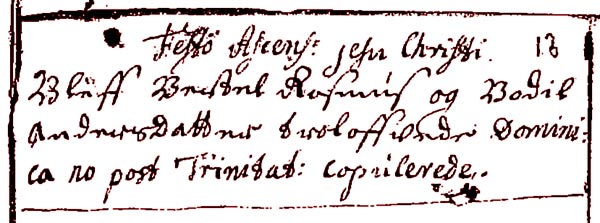 Festo Ascens: Jesu Christi. 13
Bleff Bertel Rasmus og Bodil
Andersdatter troloffvede Domini:
ca no post Trinitat: Copulerede.